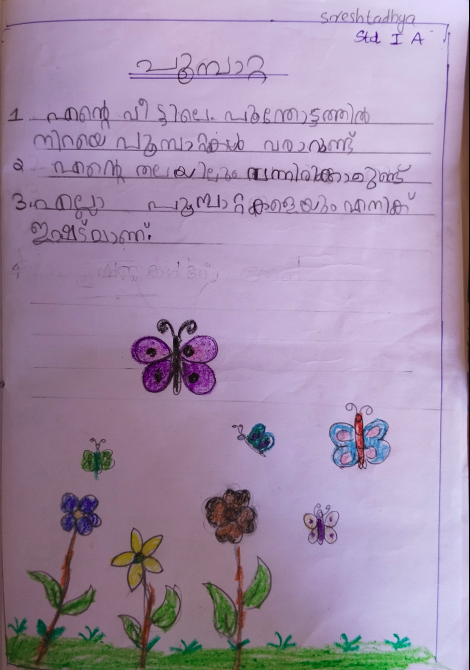 sreshtadhya
Std I A
പൂമ്പാറ്റ
1. എന്റെ വീട്ടിലെ പൂന്തോട്ടത്തിൽ
നിറയെ പൂമ്പാറ്റകൾ വരാറുണ്ട്
2 എന്റെ തലയിലും വന്നിരിക്കാറുണ്ട്
3. എല്ലാ പൂമ്പാറ്റകളെയും എനിക്ക്
ഇഷ്ടമാണ്.
4